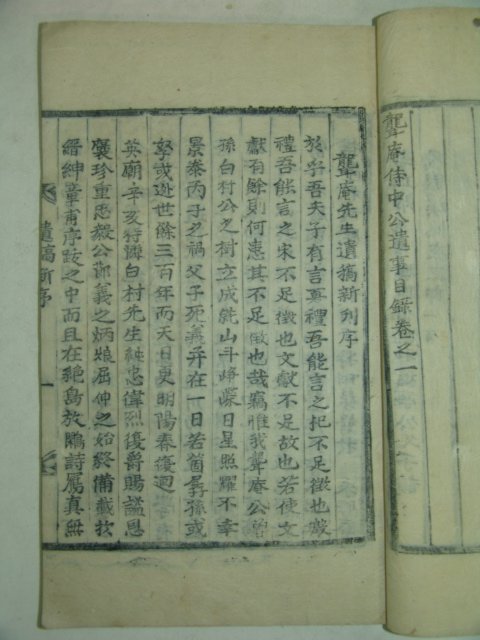 聾庵侍中公遺事目錄卷之一
聾庵先生遺稿新刊序
於乎吾夫子有言夏禮吾能言之杞不足徵也殷
禮吾能言之宋不足徵也文獻不足故也若使文
獻有餘則何患其不足徵也哉竊惟我聾庵公曾
孫白村公之樹立成就山斗峙嶽日星照耀不幸
景泰丙子之禍父子死義并在一日若箇孱孫或
孥或逃世餘三百年而天日更明陽春復廻
英廟辛亥特憐白村先生純忠偉烈復爵賜謚恩
褒珍重忠毅公鄭義之炳烺屈伸之始終備載於
搢紳章甫序跋之中而且在絶島放鵰詩鴈真無
遺稿新序
一